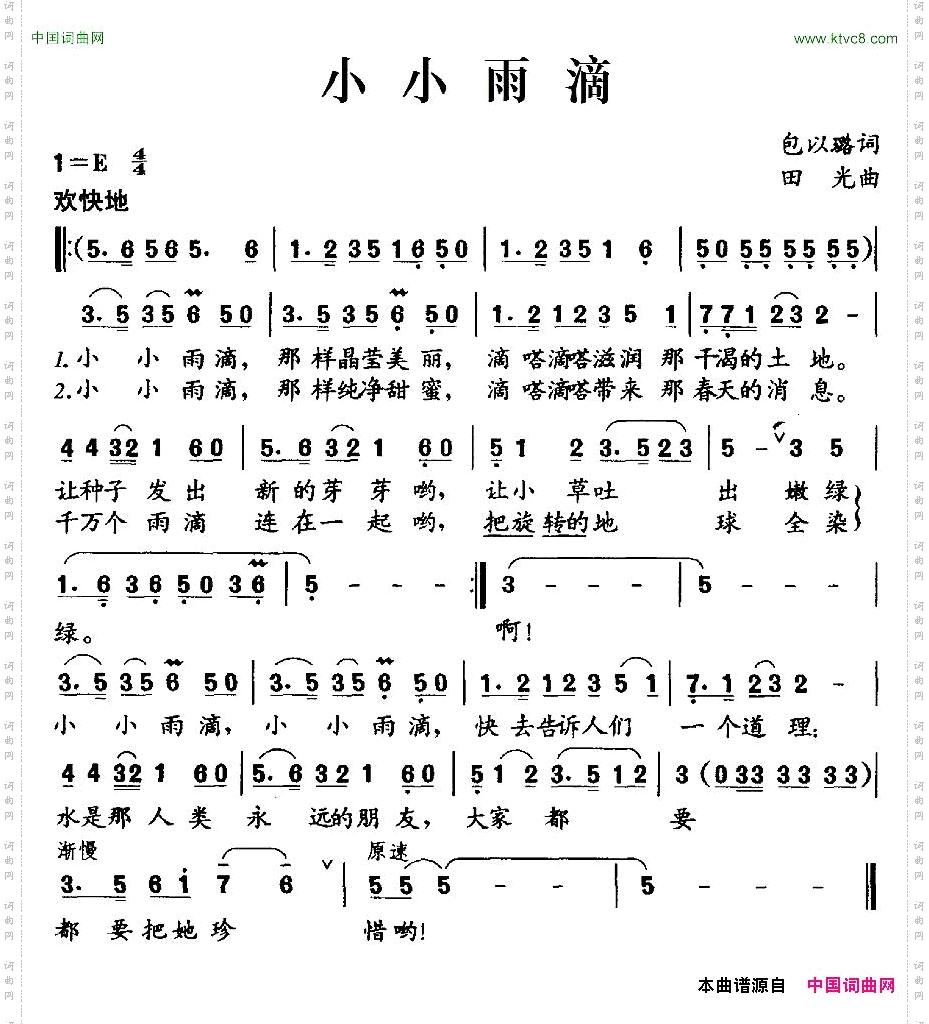 中国词曲网 www.ktvc8.com
小小雨滴
包以璐词
1=E 4/4
田 光曲
欢快地
‖:(5. 6 5 6 5. 6 | 1. 2 3 5 1 6 5 0 | 1. 2 3 5 1 6 | 5 0 5 5 5 5 5 5)|
3. 5 3 5 6 5 0 | 3. 5 3 5 6 5 0 | 1. 2 1 2 3 5 1 | 7. 7 1 2 3 2 - |
1.小 小 雨 滴，那 样晶莹美 丽，滴 嗒滴嗒滋润 那 干渴的土 地。
2.小 小 雨 滴，那 样纯净甜 蜜，滴 嗒滴嗒带来 那 春天的消 息。
4 4 3 2 1 6 0 | 5. 6 3 2 1 6 0 | 5 1 2 3. 5 2 3 | 5 - 3 5 |
让种子 发出 新的芽 芽哟，让小 草吐 出 嫩绿
千万个 雨滴 连在一 起哟，把旋转的地 球 全染
1. 6 3 6 5 0 3 6 | 5 - - - :‖ 3 - - - | 5 - - - |
绿。 啊！
3. 5 3 5 6 5 0 | 3. 5 3 5 6 5 0 | 1. 2 1 2 3 5 1 | 7. 1 2 3 2 - |
小 小 雨 滴，小 小 雨 滴，快 去告诉人们 一个道 理：
4 4 3 2 1 6 0 | 5. 6 3 2 1 6 0 | 5 1 2 3. 5 1 2 | 3 (0 3 3 3 3 3 3 3) |
水是那 人类 永 远的朋 友，大家 都 要
渐慢 原速
3. 5 6 i 7 6 | 5 5 5 - - | 5 - - - ‖
都 要把她珍 惜哟！
本曲谱源自 中国词曲网